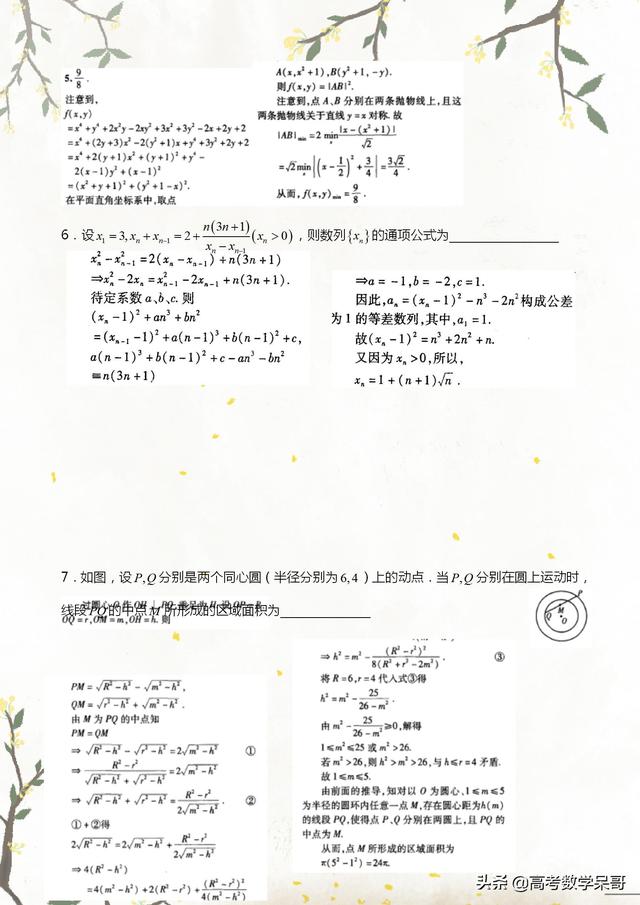 5. 9/8 .
注意到,
f(x,y)
=x⁴+y⁴+2x²y-2xy²+3x²+3y²-2x+2y+2
=x⁴+(2y+3)x²-2(y²+1)x+y⁴+3y²+2y+2
=x⁴+2(y+1)x²+(y+1)²+y⁴-
2(x-1)y²+(x-1)²
=(x²+y+1)²+(y²+1-x)².
在平面直角坐标系中,取点
A(x,x²+1),B(y²+1,-y).
则f(x,y)=|AB|².
注意到,点A、B分别在两条抛物线上,且这
两条抛物线关于直线y=x对称.故
|AB|min=2 min |x-(x²+1)|/√2
=√2 min|(x-1/2)²+3/4|=3√2/4.
从而,f(x,y)min=9/8.
6.设x₁=3,xₙ+xₙ₋₁=2+n(3n+1)/(xₙ-xₙ₋₁)(xₙ>0),则数列{xₙ}的通项公式为
xₙ²-xₙ₋₁²=2(xₙ-xₙ₋₁)+n(3n+1)
⇒xₙ²-2xₙ=xₙ₋₁²-2xₙ₋₁+n(3n+1).
待定系数a、b、c.则
(xₙ-1)²+an³+bn²
=(xₙ₋₁-1)²+a(n-1)³+b(n-1)²+c,
a(n-1)³+b(n-1)²+c-an³-bn²
≡n(3n+1)
⇒a=-1,b=-2,c=1.
因此,aₙ=(xₙ-1)²-n³-2n²构成公差
为1的等差数列,其中,a₁=1.
故(xₙ-1)²=n³+2n²+n.
又因为xₙ>0,所以,
xₙ=1+(n+1)√n.
7.如图,设P,Q分别是两个同心圆(半径分别为6,4)上的动点.当P,Q分别在圆上运动时,
线段PQ的中点M所形成的区域面积为
OQ=r,OM=m,OH=h.则
P
Q
M
O
PM=√(R²-h²)-√(m²-h²),
QM=√(r²-h²)+√(m²-h²).
由M为PQ的中点知
PM=QM
⇒√(R²-h²)-√(r²-h²)=2√(m²-h²) ①
⇒(R²-r²)/(√(R²-h²)+√(r²-h²))=2√(m²-h²)
⇒√(R²-h²)+√(r²-h²)=(R²-r²)/(2√(m²-h²)). ②
①+②得
2√(R²-h²)=2√(m²-h²)+(R²-r²)/(2√(m²-h²))
⇒4(R²-h²)
=4(m²-h²)+2(R²-r²)+(R²-r²)²/(4(m²-h²))
⇒h²=m²-(R²-r²)²/(8(R²+r²-2m²)). ③
将R=6,r=4代入式③得
h²=m²-25/(26-m²).
由m²-25/(26-m²)≥0,解得
1≤m²≤25或m²>26.
若m²>26,则h²>m²>26,与h≤r=4矛盾.
故1≤m≤5.
由前面的推导,知对以O为圆心、1≤m≤5
为半径的圆环内任意一点M,存在圆心距为h(m)
的线段PQ,使得点P、Q分别在两圆上,且PQ的
中点为M.
从而,点M所形成的区域面积为
π(5²-1²)=24π.
头条@高考数学呆哥